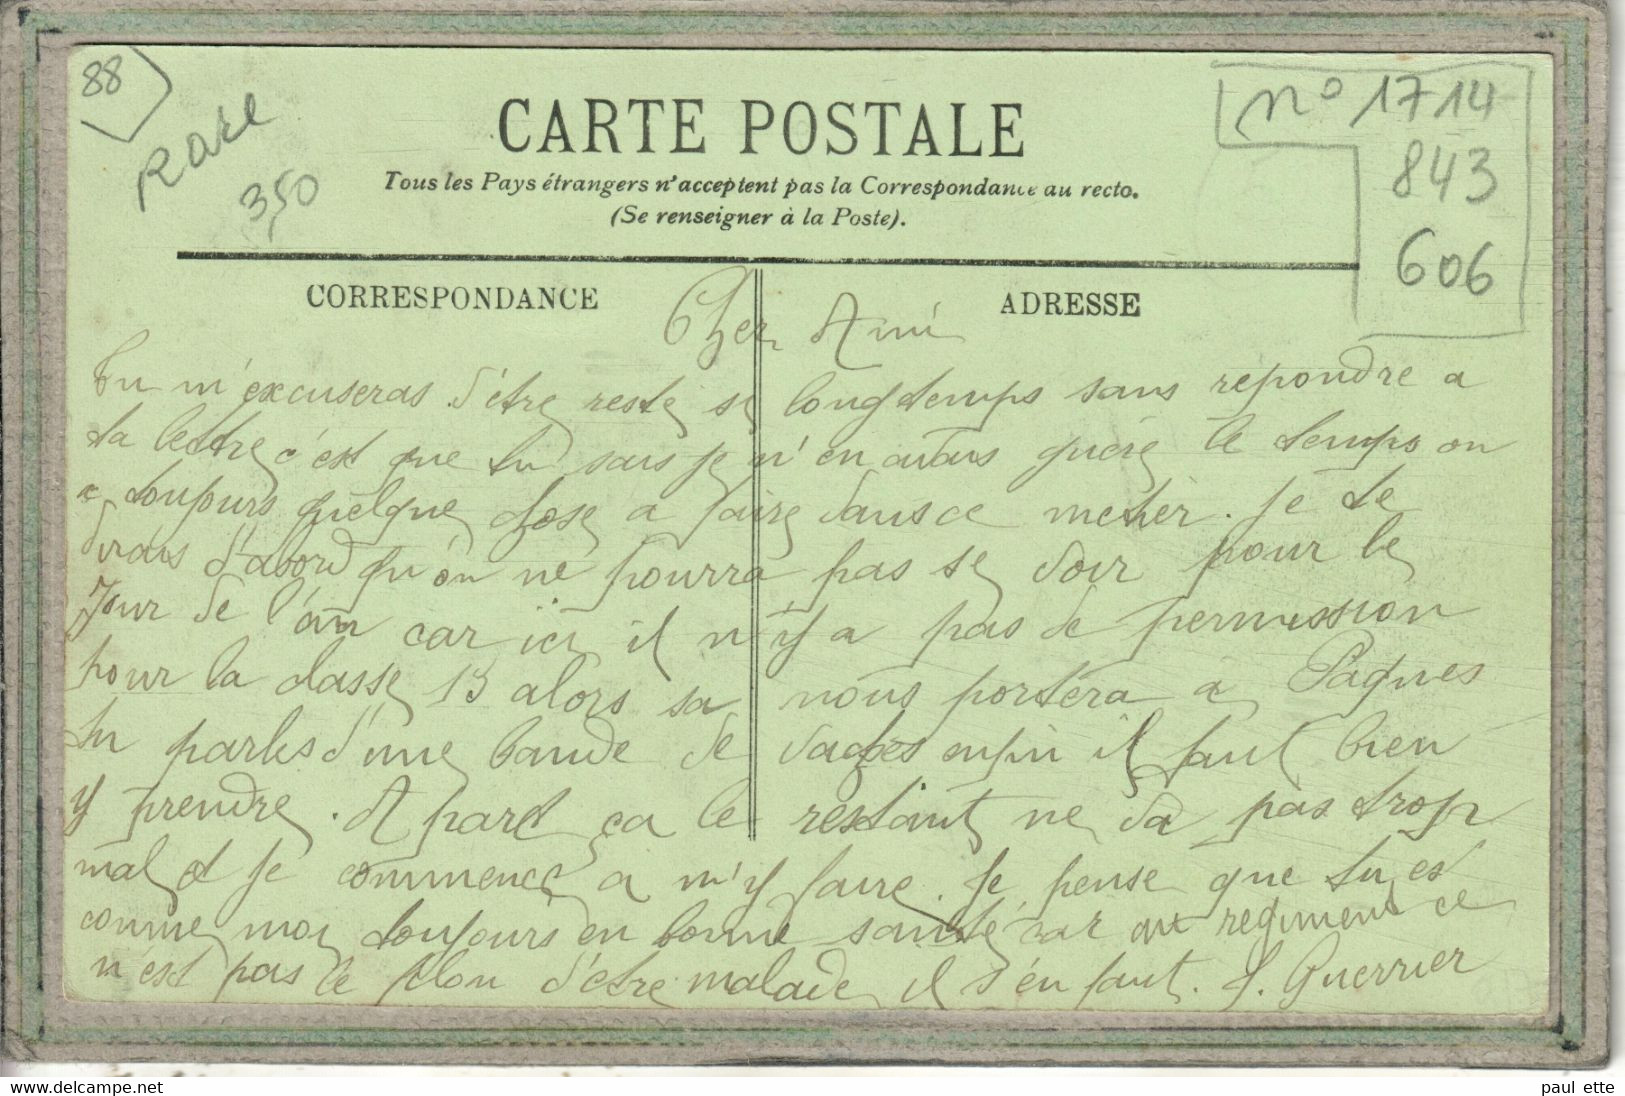 88
Rare
350
n° 1714
843
606
CARTE POSTALE
Tous les Pays étrangers n'acceptent pas la Correspondance au recto.
(Se renseigner à la Poste).
CORRESPONDANCE
ADRESSE
Cher Ami
Tu m'excuseras d'être resté si longtemps sans repondre a
ta lettre c'est que tu sais je n'en avais guère le temps on
a toujours quelque chose a faire dans ce metier. Je te
dirais d'abord qu'on ne pourra pas se voir pour le
Jour de l'an car ici il n'y a pas de permission
pour la classe 13 alors sa nous portera a Paques
tu parles d'une bande de vaches enfin il faut bien
y prendre. A part ça le restant ne va pas trop
mal et je commence a m'y faire. Je pense que tu es
comme moi toujours en bonne santé car au regiment ce
n'est pas le filon d'être malade il s'en faut. J. Guerrier
www.delcampe.net
paul ette